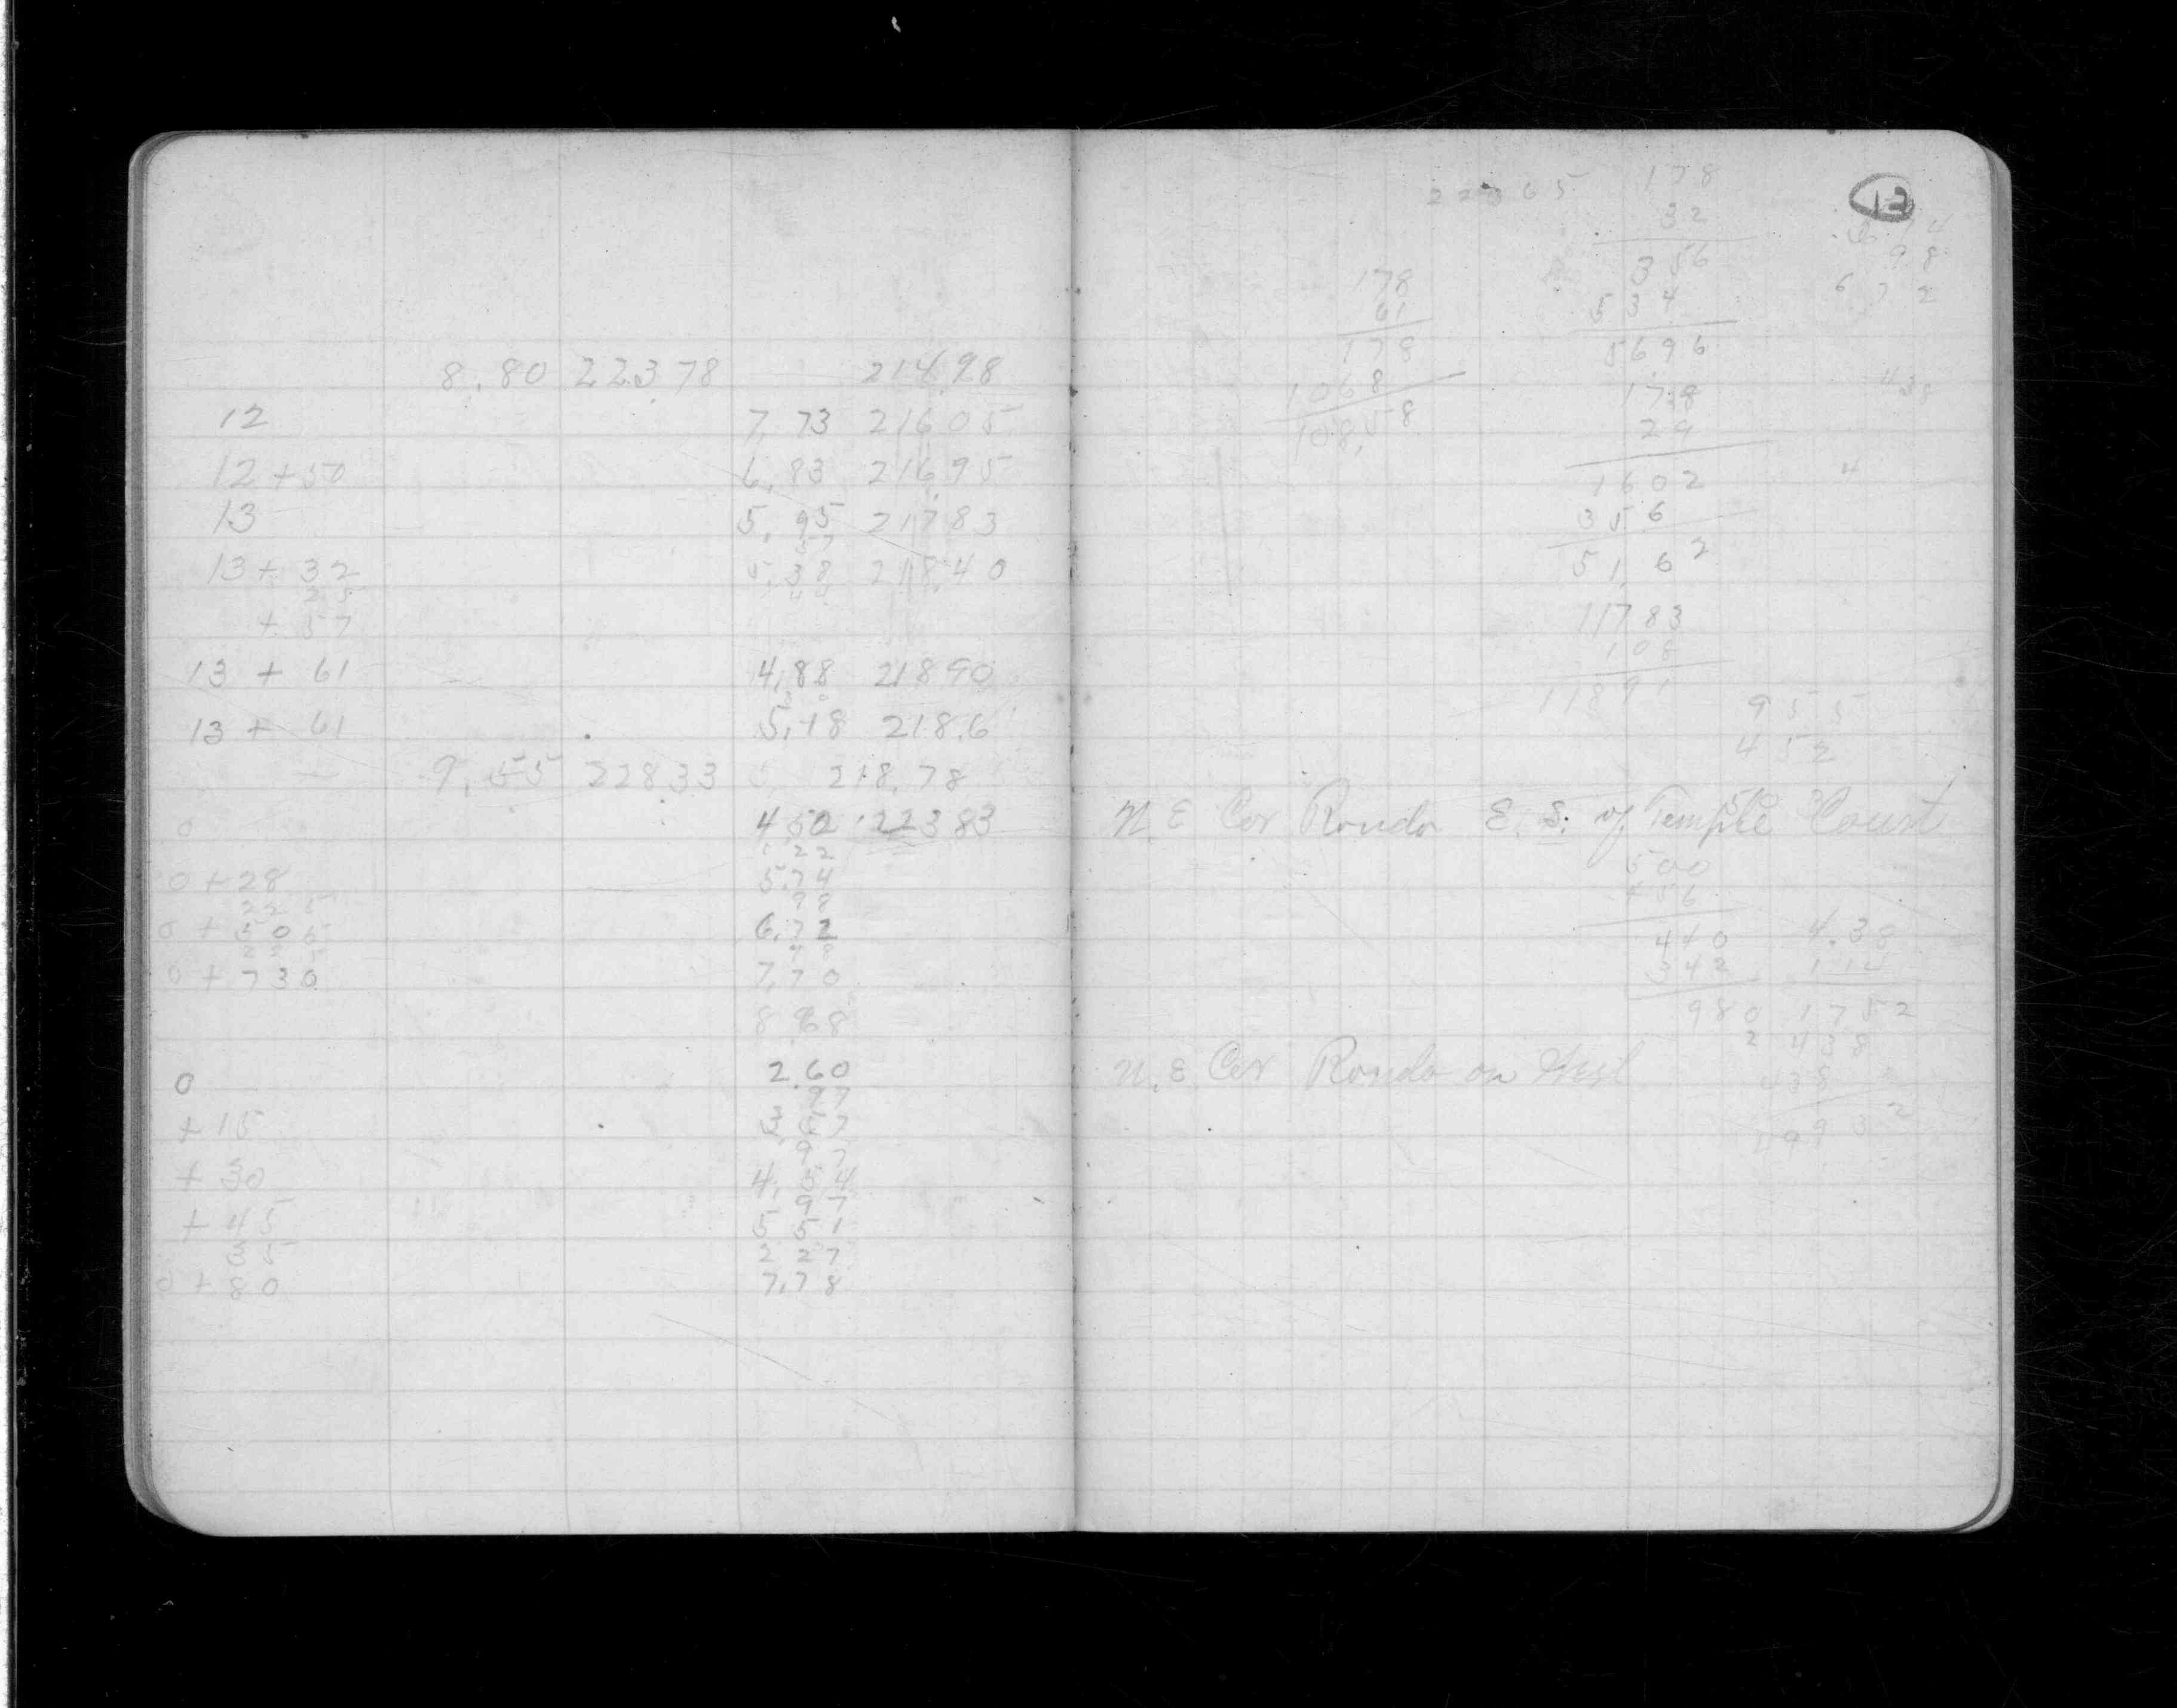 8.80 22378 214.98
12 7.73 21605
12 + 50 6.83 21695
13 5.95 21783
57
13 + 32 5.38 218.40
25
+ 57
13 + 61 4.88 21890
13 + 61 5.18 218.6
9.55 22833 218.78
0 4 50 22383
1 22
0 + 28 5.74
22 5 98
0 + 50 5 6.72
22 5 98
0 + 730 7.70
8 68
0 2.60
97
+ 15 3 57
97
+ 30 4.54
97
+ 45 5 51
35 2 27
0 + 80 7.78
13
22365
178
32
356
534
5696
178
29
1602
356
51.62
11783
108
11891
178
61
178
1068
108.58
98
6 72
438
4
955
452
N. E Cor Rondo E. S. of Temple Court
500
456
440
542
980
4.38
1752
438
438
N. E Cor Rondo on West